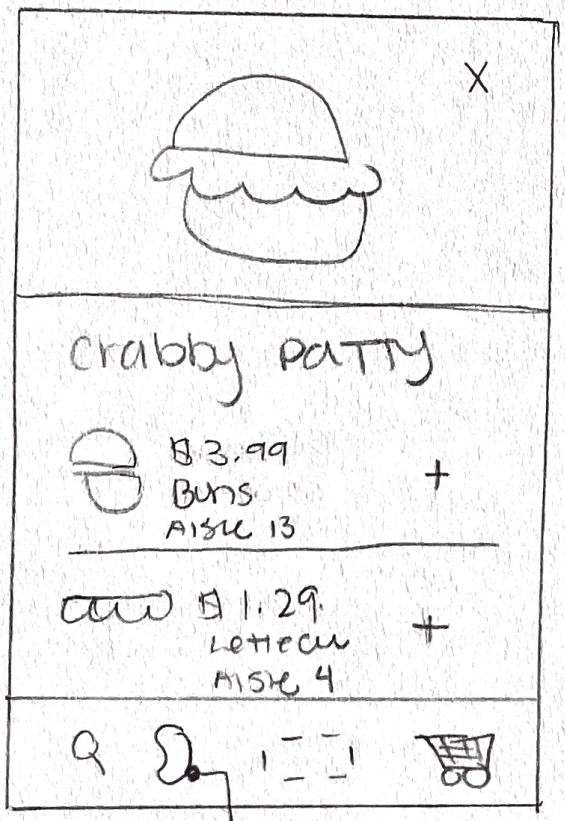 X
Crabby Patty
$3.99
Buns
Aisle 13
$1.29
Aisle 4